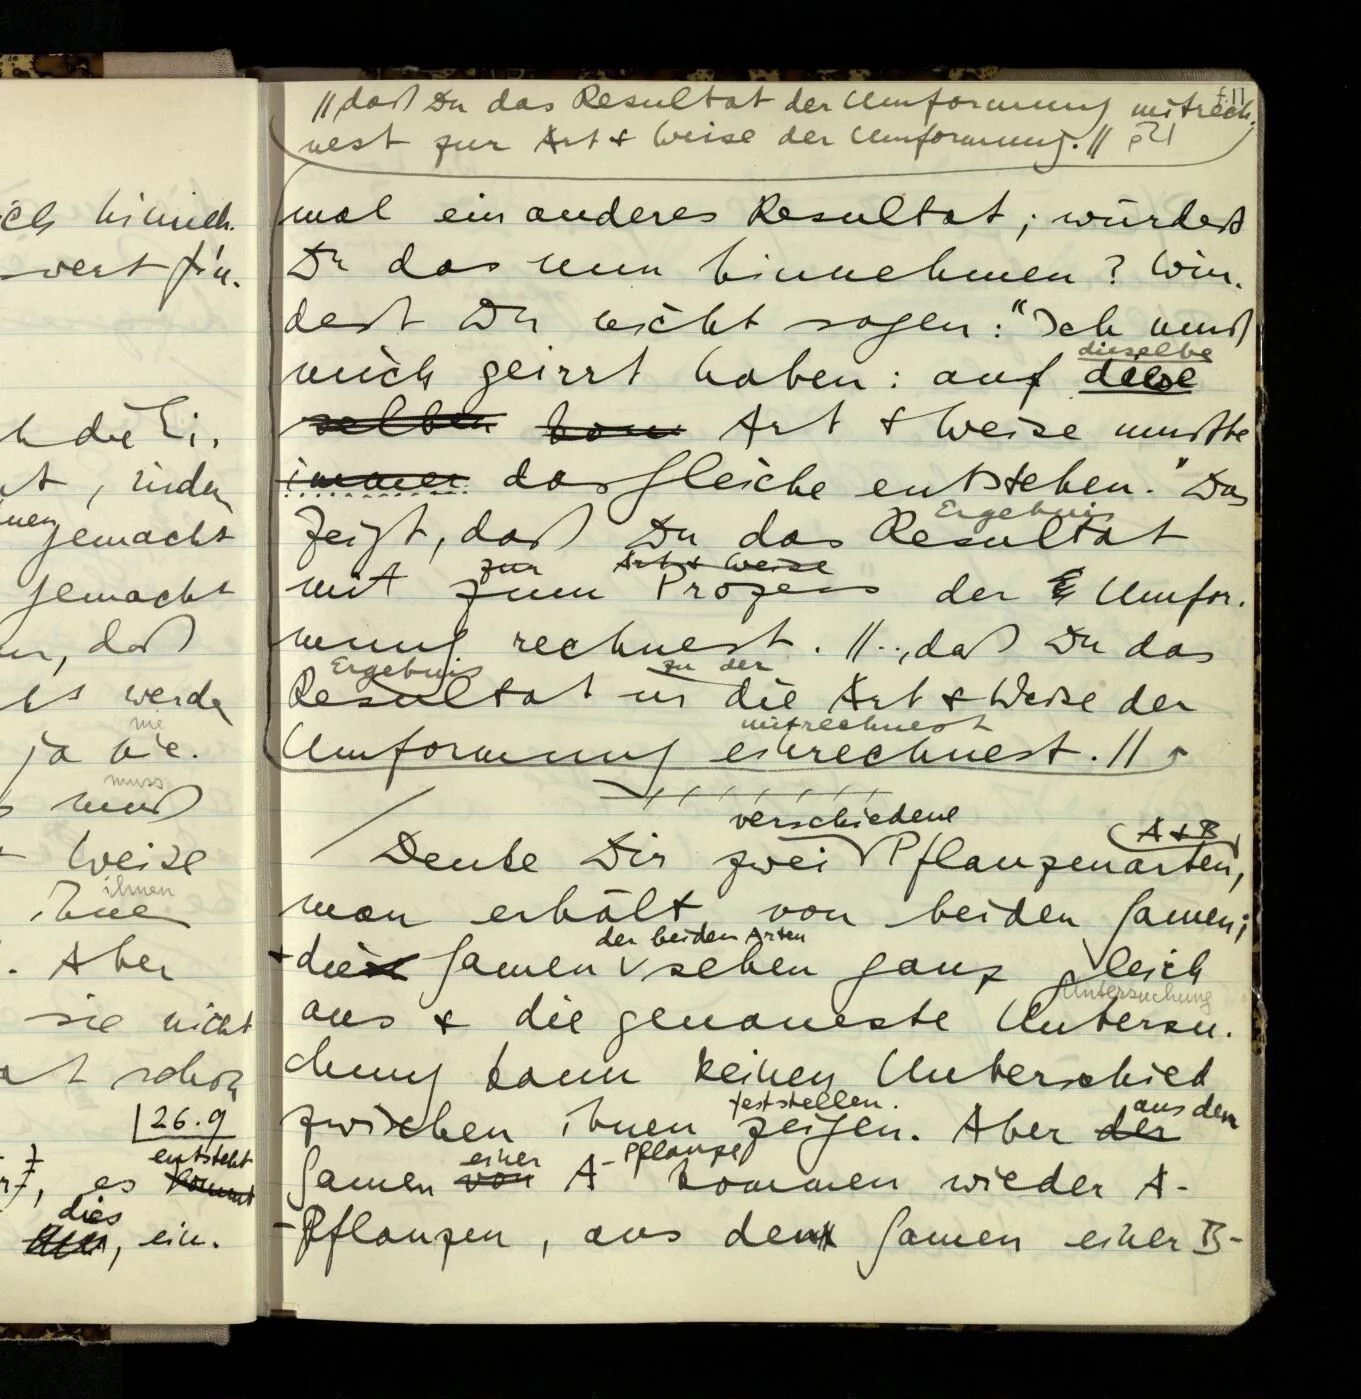 f.11
//, daß Du das Resultat der Umformung mitrech-
nest zur Art & Weise der Umformung. //
mal ein anderes Resultat; würdest
Du das nun hinnehmen? Wür-
dest Du nicht sagen: "Ich muß
dieselbe
mich geirrt haben: auf diese
selben Art & Weise mußte
immer das Gleiche entstehen." Das
Ergebnis
zeigt, daß Du das Resultat
zur Art & Weise
mit zum Prozess der Umfor-
mung rechnest. //.., daß Du das
Ergebnis zu der
Resultat in die Art & Weise der
mitrechnest
Umformung einrechnest. //
verschiedene A & B
Denke Dir zwei Pflanzenarten,
man erhält von beiden Samen;
der beiden Arten
+ die Samen sehen ganz gleich
Untersuchung
aus & die genaueste Untersu-
chung kann keinen Unterschied
feststellen. aus den
zwischen ihnen zeigen. Aber der
einer Pflanze
Samen von A- kommen wieder A-
-Pflanzen, aus den Samen einer B-
ich hinein.
die Ei.
, sindern
gemacht
gemacht
, daß
werde
nie
ja nie.
muss
muß
Weise
ihnen
ihne
. Aber
sie nicht
schon
26.9
entsteht
, es kommt
dies
, ein-